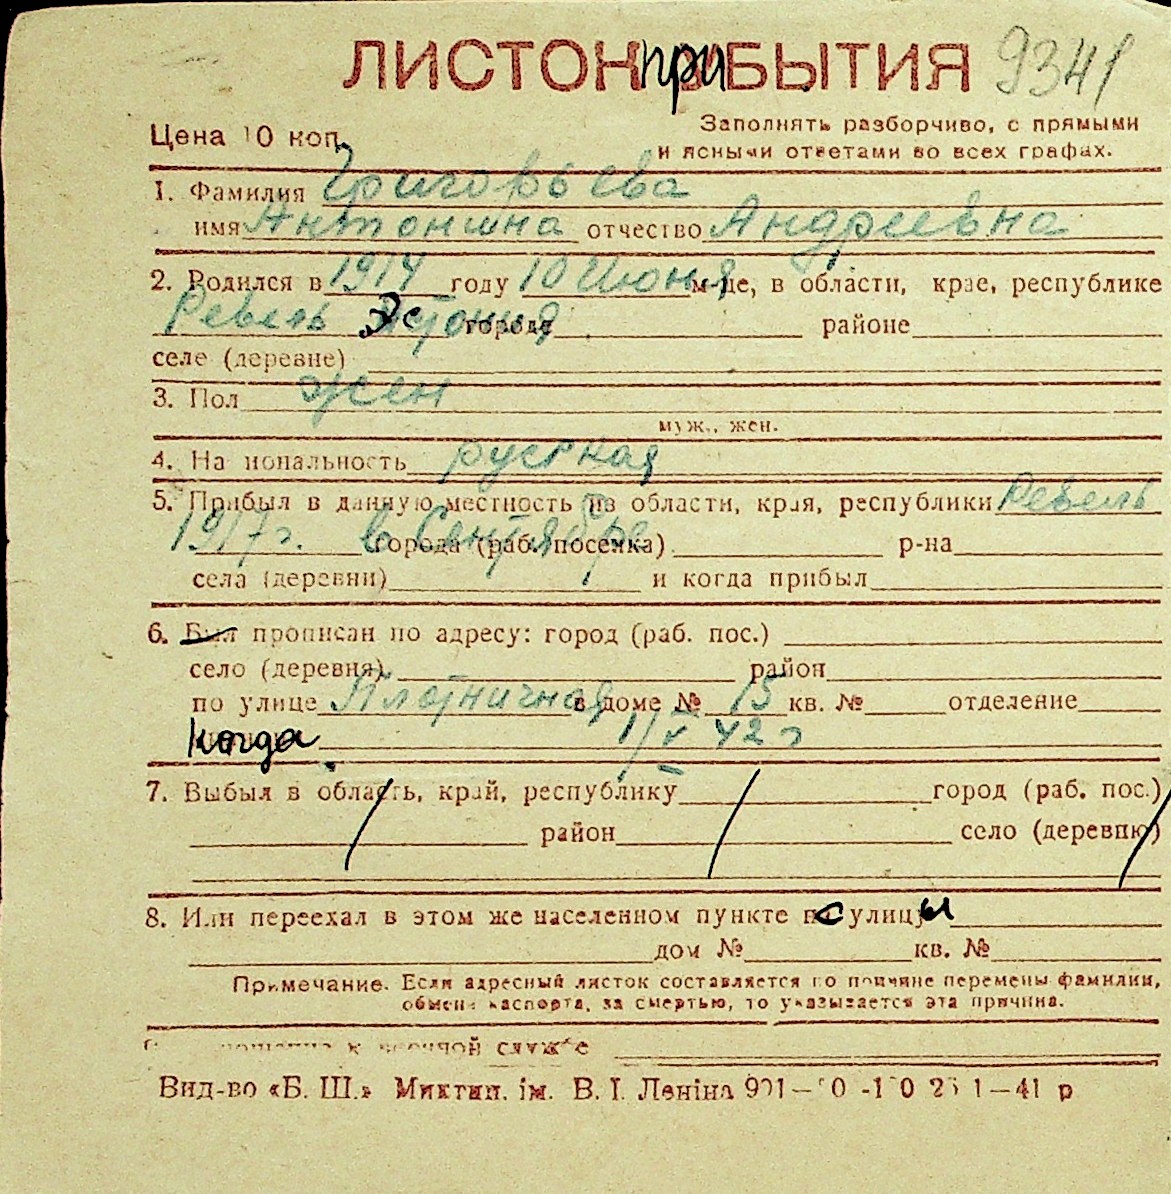 ЛИСТОК прибЫТИЯ 9341
Цена 10 коп.
Заполнять разборчиво, с прямыми
и ясными ответами во всех графах.
1. Фамилия Григорьева
имя Антонина отчество Андреевна
2. Родился в 1914 году 10 Июня м-це, в области, крае, республике
Ревель Эстония городе районе
селе (деревне)
3. Пол жен
муж., жен.
4. Национальность русская
5. Прибыл в данную местность из области, края, республики Ревель
1917 г. в Сентябре города (раб. поселка) р-на
села (деревни) и когда прибыл
6. Был прописан по адресу: город (раб. пос.)
село (деревня) район
по улице Плотничная в доме № 15 кв. № отделение
когда 1/V 42 г
7. Выбыл в область, край, республику город (раб. пос.)
район село (деревню)
8. Или переехал в этом же населенном пункте с улицы
дом № кв. №
Примечание. Если адресный листок составляется по причине перемены фамилии,
обмена паспорта, за смертью, то указывается эта причина.
к военной службе
Вид-во «Б. Ш.» Миктип. ім. В. І. Леніна 1—41 р